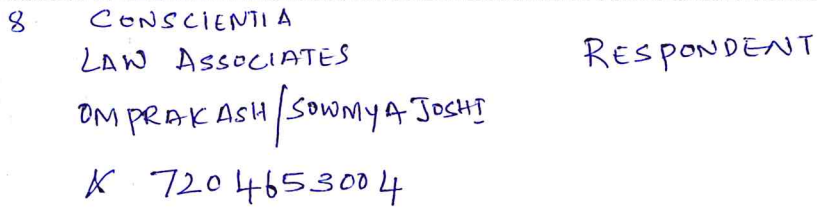 8 CONSCIENTIA
LAW ASSOCIATES RESPONDENT
OMPRAKASH/SOWMYA JOSHI
K 7204653004